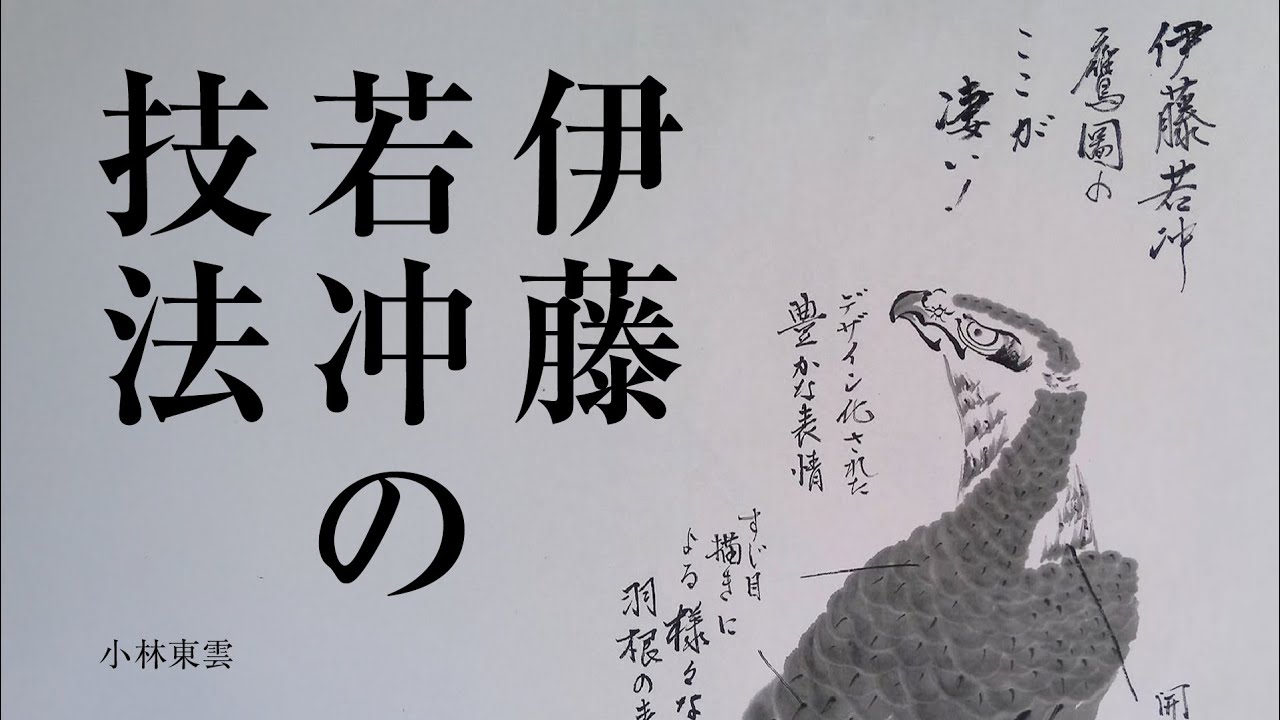 伊藤
若冲の
技法
小林東雲
伊藤若冲
鷹圖の
ここが
凄い!
デザイン化された
豊かな表情
すじ目
描きに
よる様々な
羽根の表
開